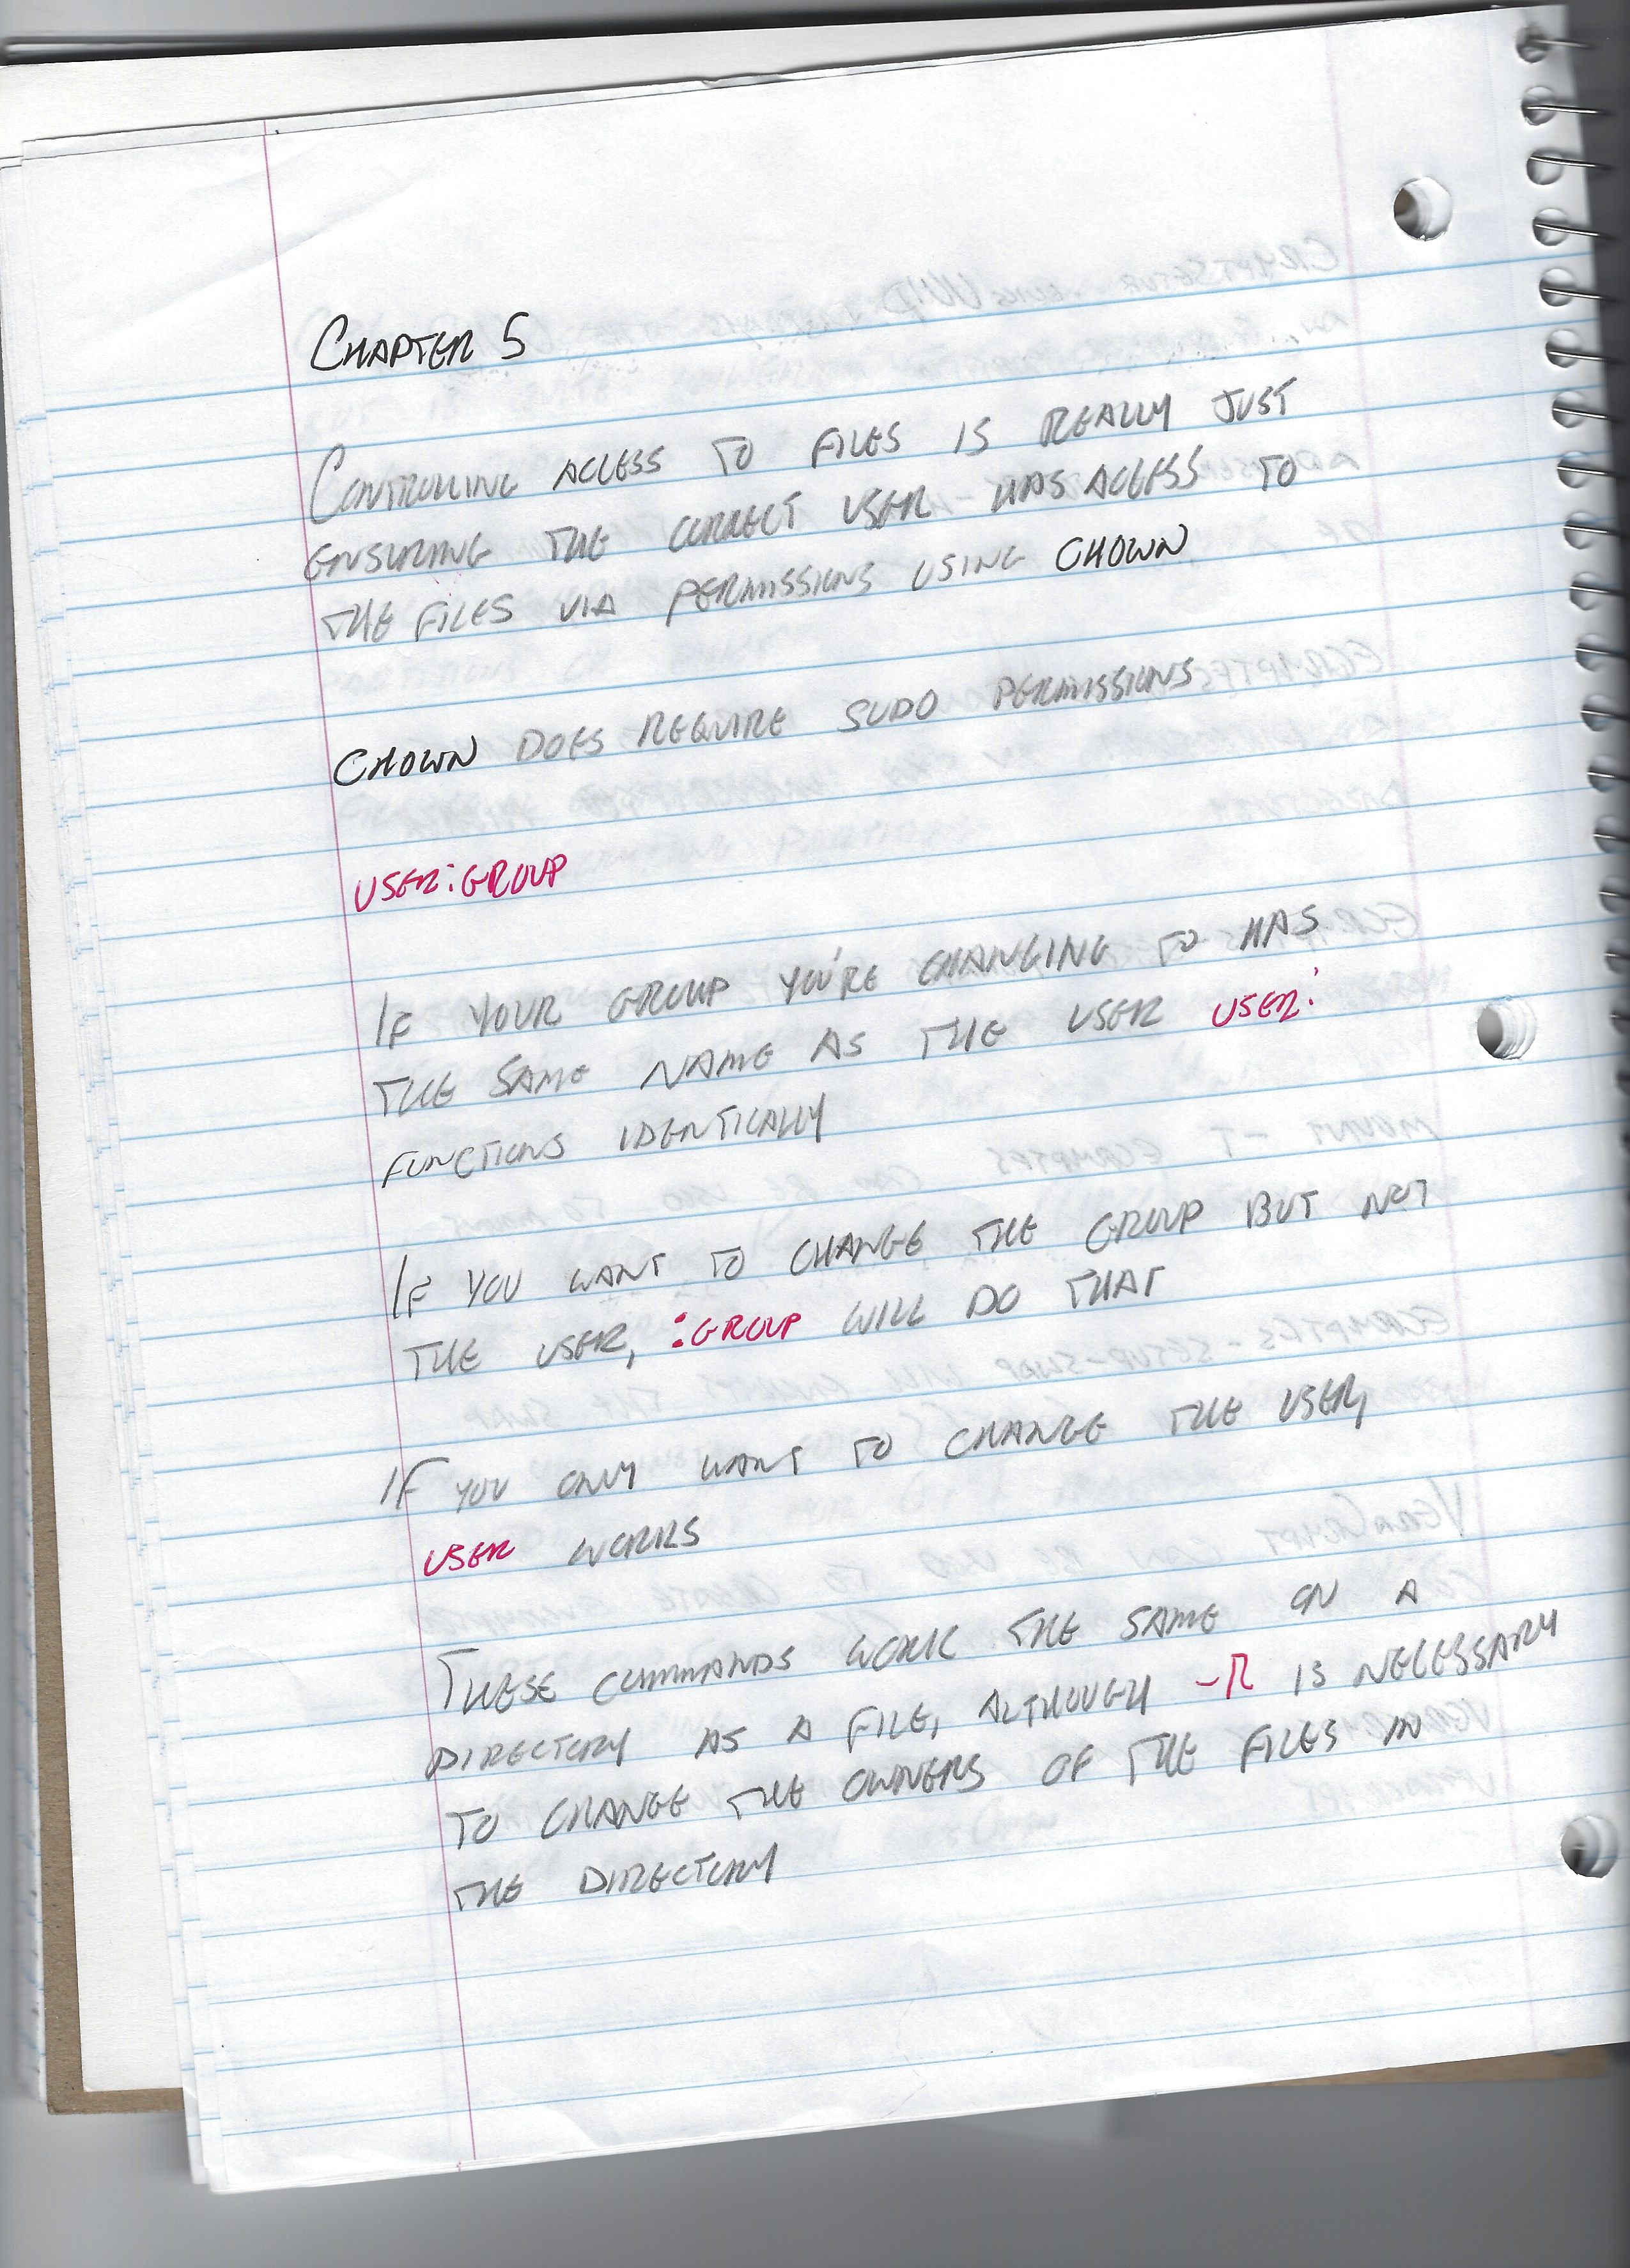 CHAPTER 5
CONTROLLING ACCESS TO FILES IS REALLY JUST
ENSURING THE CORRECT USER HAS ACCESS TO
THE FILES VIA PERMISSIONS USING CHOWN
CHOWN DOES REQUIRE SUDO PERMISSIONS
USER:GROUP
IF YOUR GROUP YOU'RE CHANGING TO HAS
THE SAME NAME AS THE USER USER:
FUNCTIONS IDENTICALLY
IF YOU WANT TO CHANGE THE GROUP BUT NOT
THE USER, :GROUP WILL DO THAT
IF YOU ONLY WANT TO CHANGE THE USER,
USER WORKS
THESE COMMANDS WORK THE SAME ON A
DIRECTORY AS A FILE, ALTHOUGH -R IS NECESSARY
TO CHANGE THE OWNERS OF THE FILES IN
THE DIRECTORY